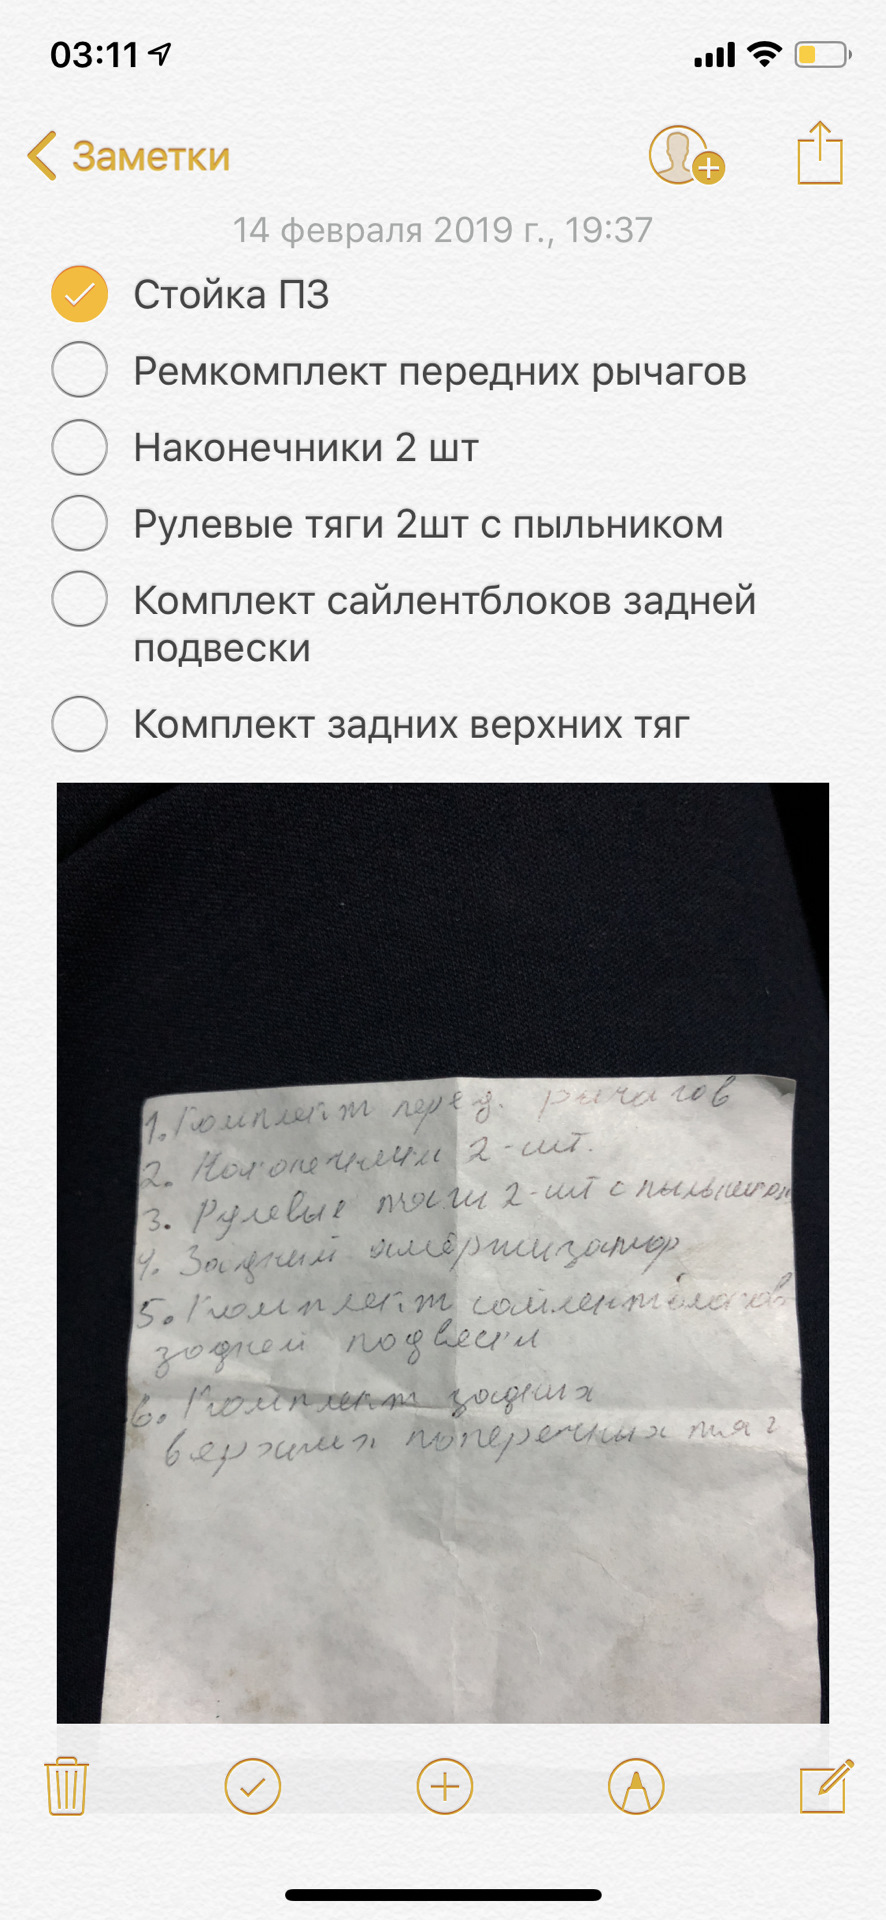 03:11
Заметки
14 февраля 2019 г., 19:37
Стойка ПЗ
Ремкомплект передних рычагов
Наконечники 2 шт
Рулевые тяги 2шт с пыльником
Комплект сайлентблоков задней
подвески
Комплект задних верхних тяг
1. Комплект перед. рычагов
2. Наконечники 2-шт.
3. Рулевые тяги 2-шт с пыльником
4. Задний амортизатор
5. Комплект сайлентблоков
задней подвески
6. Комплект задних
верхних поперечных тяг